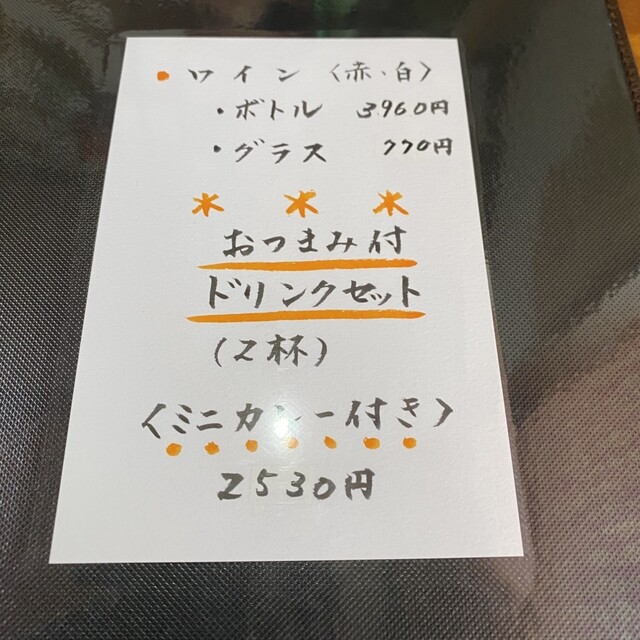 • ワイン〈赤、白〉
・ボトル 3960円
・グラス 770円
おつまみ付
ドリンクセット
(2杯)
〈ミニカレー付き〉
2530円